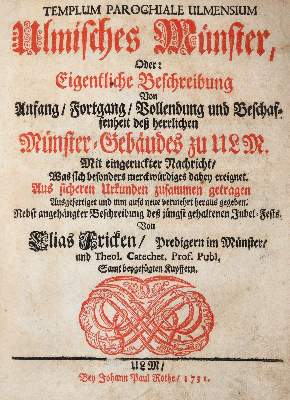 TEMPLUM PAROCHIALE ULMENSIUM
Ulmisches Münster,
Oder:
Eigentliche Beschreibung
Von
Anfang/ Fortgang/ Vollendung und Beschaf-
fenheit deß herrlichen
Münster-Gebäudes zu ULM.
Mit eingeruckter Nachricht/
Was sich besonders merckwürdiges dabey ereignet.
Aus sicheren Urkunden zusammen getragen
Ausgefertiget und nun aufs neue vermehrt heraus gegeben.
Nebst angehängter Beschreibung des jüngst gehaltenen Jubel-Fests.
Von
Elias Fricken/ Predigern im Münster/
und Theol. Catechet. Prof. Publ.
Samt beygefügten Kupffern.
ULM/
Bey Johann Paul Rothe/ 1731.